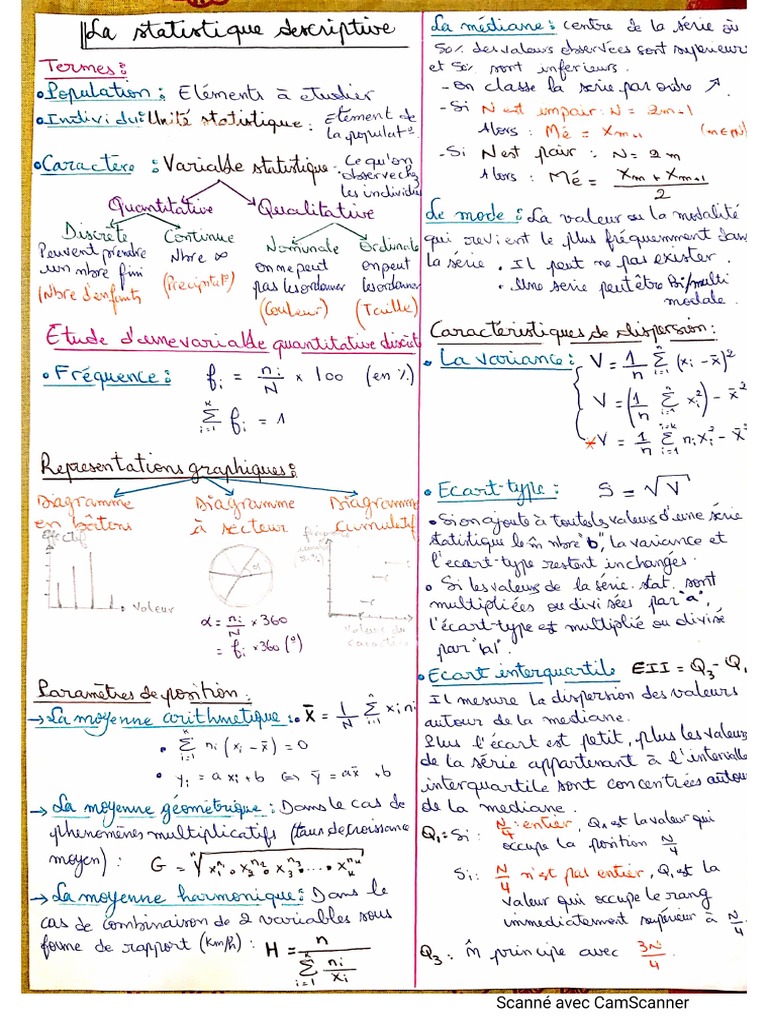 La statistique descriptive
Termes :
• Population : Eléments à etudier
• Individu : Unité statistique : Element de
la populat°
• Caractère : Variable statistique : Ce qu'on
observe chez
les individus
Quantitative Qualitative
Discrète Continue Nominale Ordinale
Peuvent prendre Nbre ∞ on ne peut on peut
un nbre fini (Précipitat°) pas les ordonner les ordonner
(Nbre d'enfants) (Couleur) (Taille)
Etude d'une variable quantitative discrèt
• Fréquence : fi = ni/N × 100 (en %)
k Σ i=1 fi = 1
Representations graphiques :
Diagramme Diagramme Diagramme
en bâtons à secteur cumulatif
Effectif
Valeur
α = ni/N × 360
= fi × 360 (°)
Valeur du
caractère
Paramètres de position :
→ La moyenne arithmetique : X̄ = 1/N n Σ i=1 xi ni
• k Σ i=1 ni (xi - x̄) = 0
• yi = a xi + b ⇔ ȳ = ax̄ + b
→ La moyenne géométrique : Dans le cas de
phenomènes multiplicatifs (taux de croissance
moyen) : G = n√(x1^n1 × x2^n2 × x3^n3 × .... × xk^nk)
→ La moyenne harmonique : Dans le
cas de combinaison de 2 variables sous
forme de rapport (km/h) : H = n / k Σ i=1 ni/xi
La médiane : centre de la série où
50% des valeurs observées sont superieur
et 50% sont inferieurs.
- On classe la serie par ordre ↗
- Si N est impair : N = 2m+1
Alors : Mé = Xm+1 (m∈N)
- Si N est pair : N = 2m
Alors : Mé = Xm + Xm+1 / 2
Le mode : La valeur ou la modalité
qui revient le plus fréquemment dans
la série . Il peut ne pas exister.
• Une serie peut être Bi/multi
modale.
Caractéristiques de dispersion :
• La variance : V = 1/n n Σ i=1 (xi - x̄)²
V = (1/n n Σ i=1 xi²) - x̄²
* V = 1/n i=k Σ i=1 ni xi² - x̄²
• Ecart-type : S = √V
• Si on ajoute à toutes ls valeurs d'une série
statistique le m̂ nbre "b", la variance et
l'ecart-type restent inchangés.
• Si les valeurs de la série stat. sont
multipliées ou divisées par "a",
l'écart-type est multiplié ou divisé
par "|a|".
• Ecart interquartile EII = Q3 - Q1
Il mesure la dispersion des valeurs
autour de la mediane.
Plus l'écart est petit, plus les valeurs
de la série appartenant à l'intervalle
interquartile sont concentrées autour
de la mediane.
Q1 : Si : N/4 : entier, Q1 est la valeur qui
occupe la position N/4
Si : N/4 n'est pas entier, Q1 est la
valeur qui occupe le rang
immediatement supérieur à N/4
Q3 : m̂ principe avec 3N/4
Scanné avec CamScanner